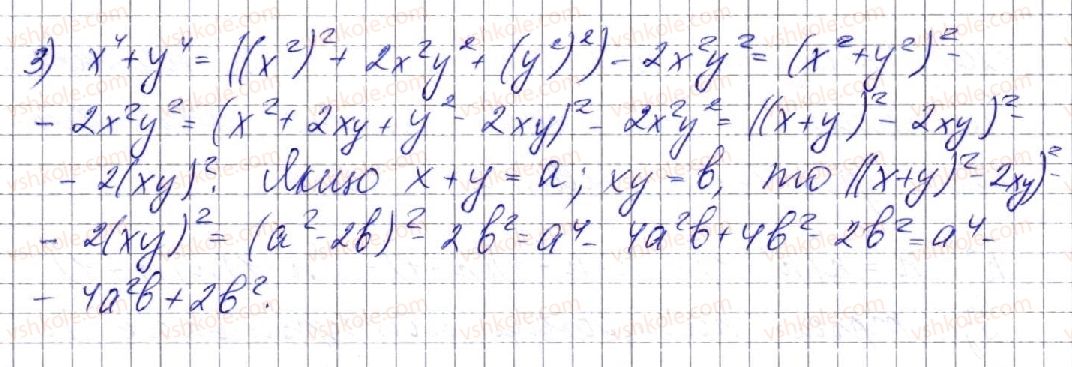 3) x⁴ + y⁴ = ((x²)² + 2x²y² + (y²)²) - 2x²y² = (x² + y²)² -
- 2x²y² = (x² + 2xy + y² - 2xy)² - 2x²y² = ((x+y)² - 2xy)² -
- 2(xy)². Якщо x + y = a; xy = b, то ((x+y)² - 2xy)² -
- 2(xy)² = (a² - 2b)² - 2b² = a⁴ - 4a²b + 4b² - 2b² = a⁴ -
- 4a²b + 2b².